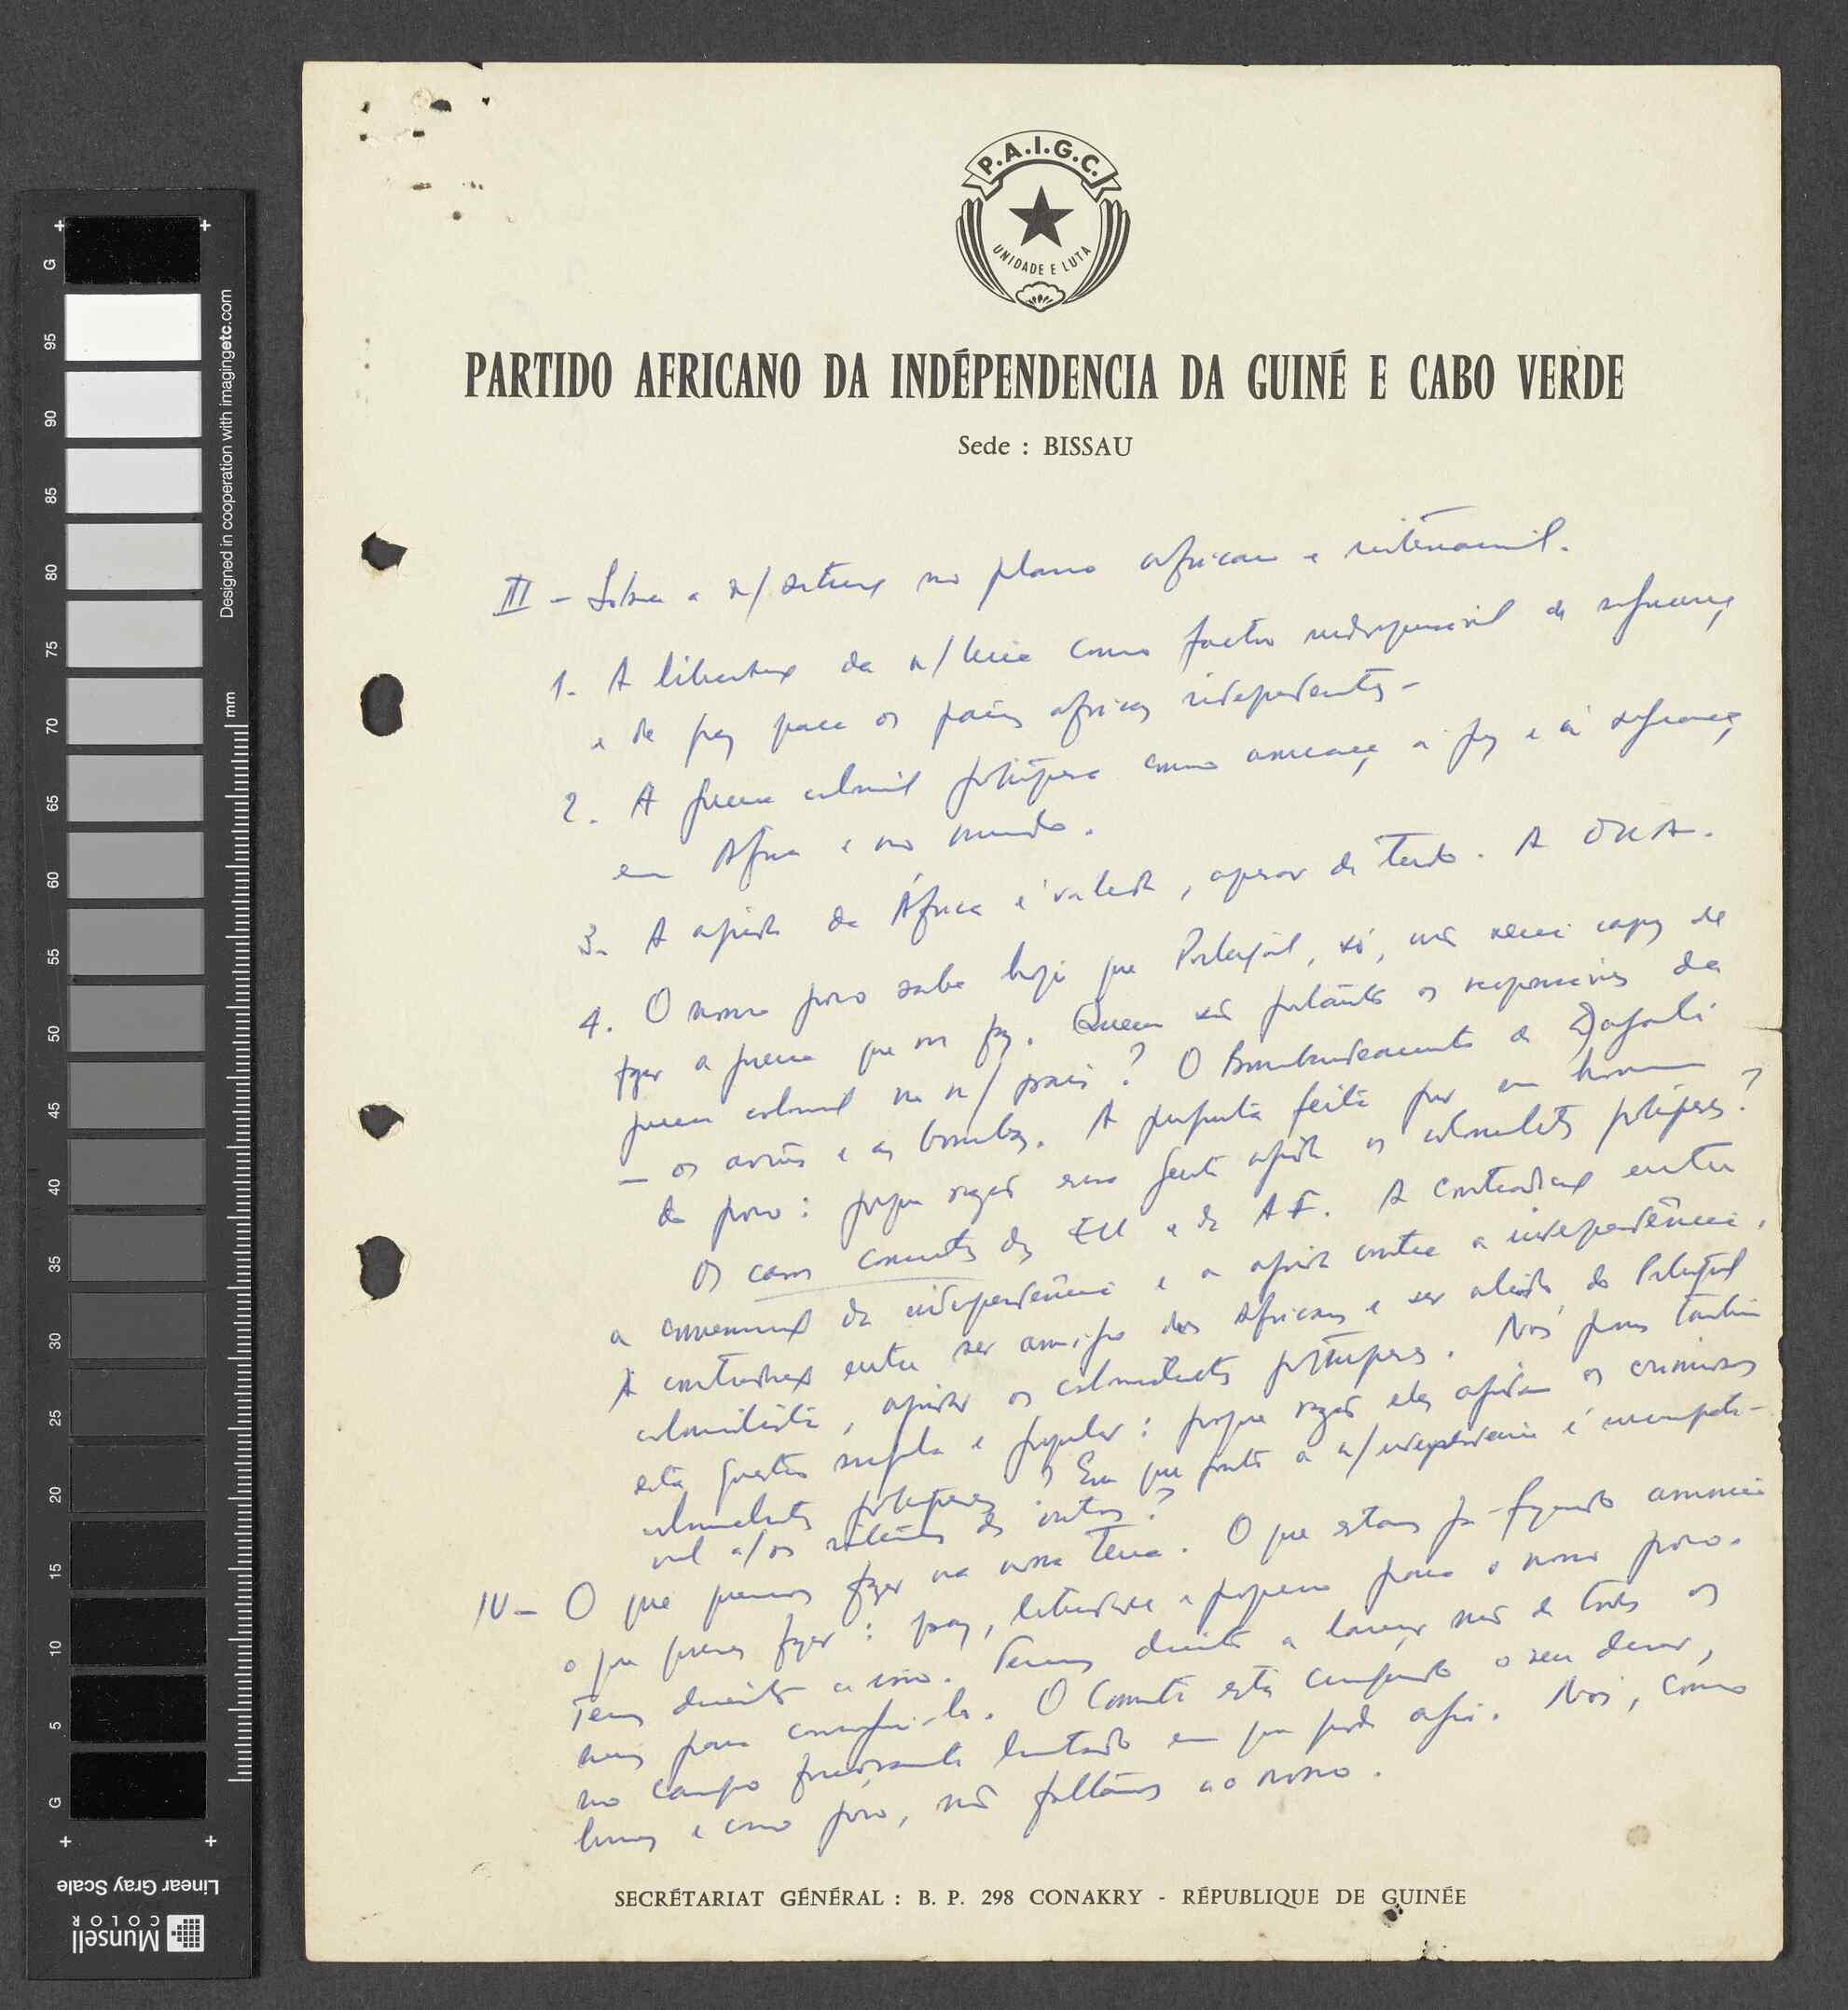 P.A.I.G.C.
UNIDADE E LUTA
PARTIDO AFRICANO DA INDÉPENDENCIA DA GUINÉ E CABO VERDE
Sede : BISSAU
III - Sobre a n/ no plano africano e internacional.
1. A libertação da n/ terra como factor indispensável de segurança
e de paz para os países africanos independentes -
2. A guerra colonial portuguesa como ameaça à paz e à segurança
em África e no mundo.
3. A ajuda da África é valiosa, apesar de tudo. A OUA.
4. O nosso povo sabe hoje que Portugal, só, não seria capaz de
fazer a guerra que nos faz. Quem são portanto os responsáveis da
guerra colonial no n/ país? O Bombardeamento de
— os aviões e as bombas. A pergunta feita por um homem
do povo: porque razão essa gente ajuda os colonialistas portugueses?
Os casos concretos dos EU e da AF. A contradição entre
a da independência e a ajuda contra a independência.
A contradição entre ser amigo dos Africanos e ser aliado do Portugal
colonialista, ajudar os colonialistas portugueses. Nós pomos também
esta questão simples e popular: porque razão eles ajudam os criminosos
colonialistas portugueses? Em que ponto a n/ independência é incompatí-
vel c/ os interesses dos outros?
IV - O que queremos fazer na nossa terra. O que estamos já fazendo anuncia
o que queremos fazer: paz, liberdade e progresso para o nosso povo.
Temos direito a isso. Temos direito a lançar mão de todos os
meios para consegui-lo. O Comité está cumprindo o seu dever,
no campo limitado em que pode agir. Nós, como
homens e como povo, não faltamos ao nosso.
SECRÉTARIAT GÉNÉRAL : B. P. 298 CONAKRY - RÉPUBLIQUE DE GUINÉE
Designed in cooperation with imagingetc.com
mm
G
95
90
85
80
75
70
65
60
55
50
45
40
35
30
25
20
15
10
5
G
Linear Gray Scale
Munsell
COLOR